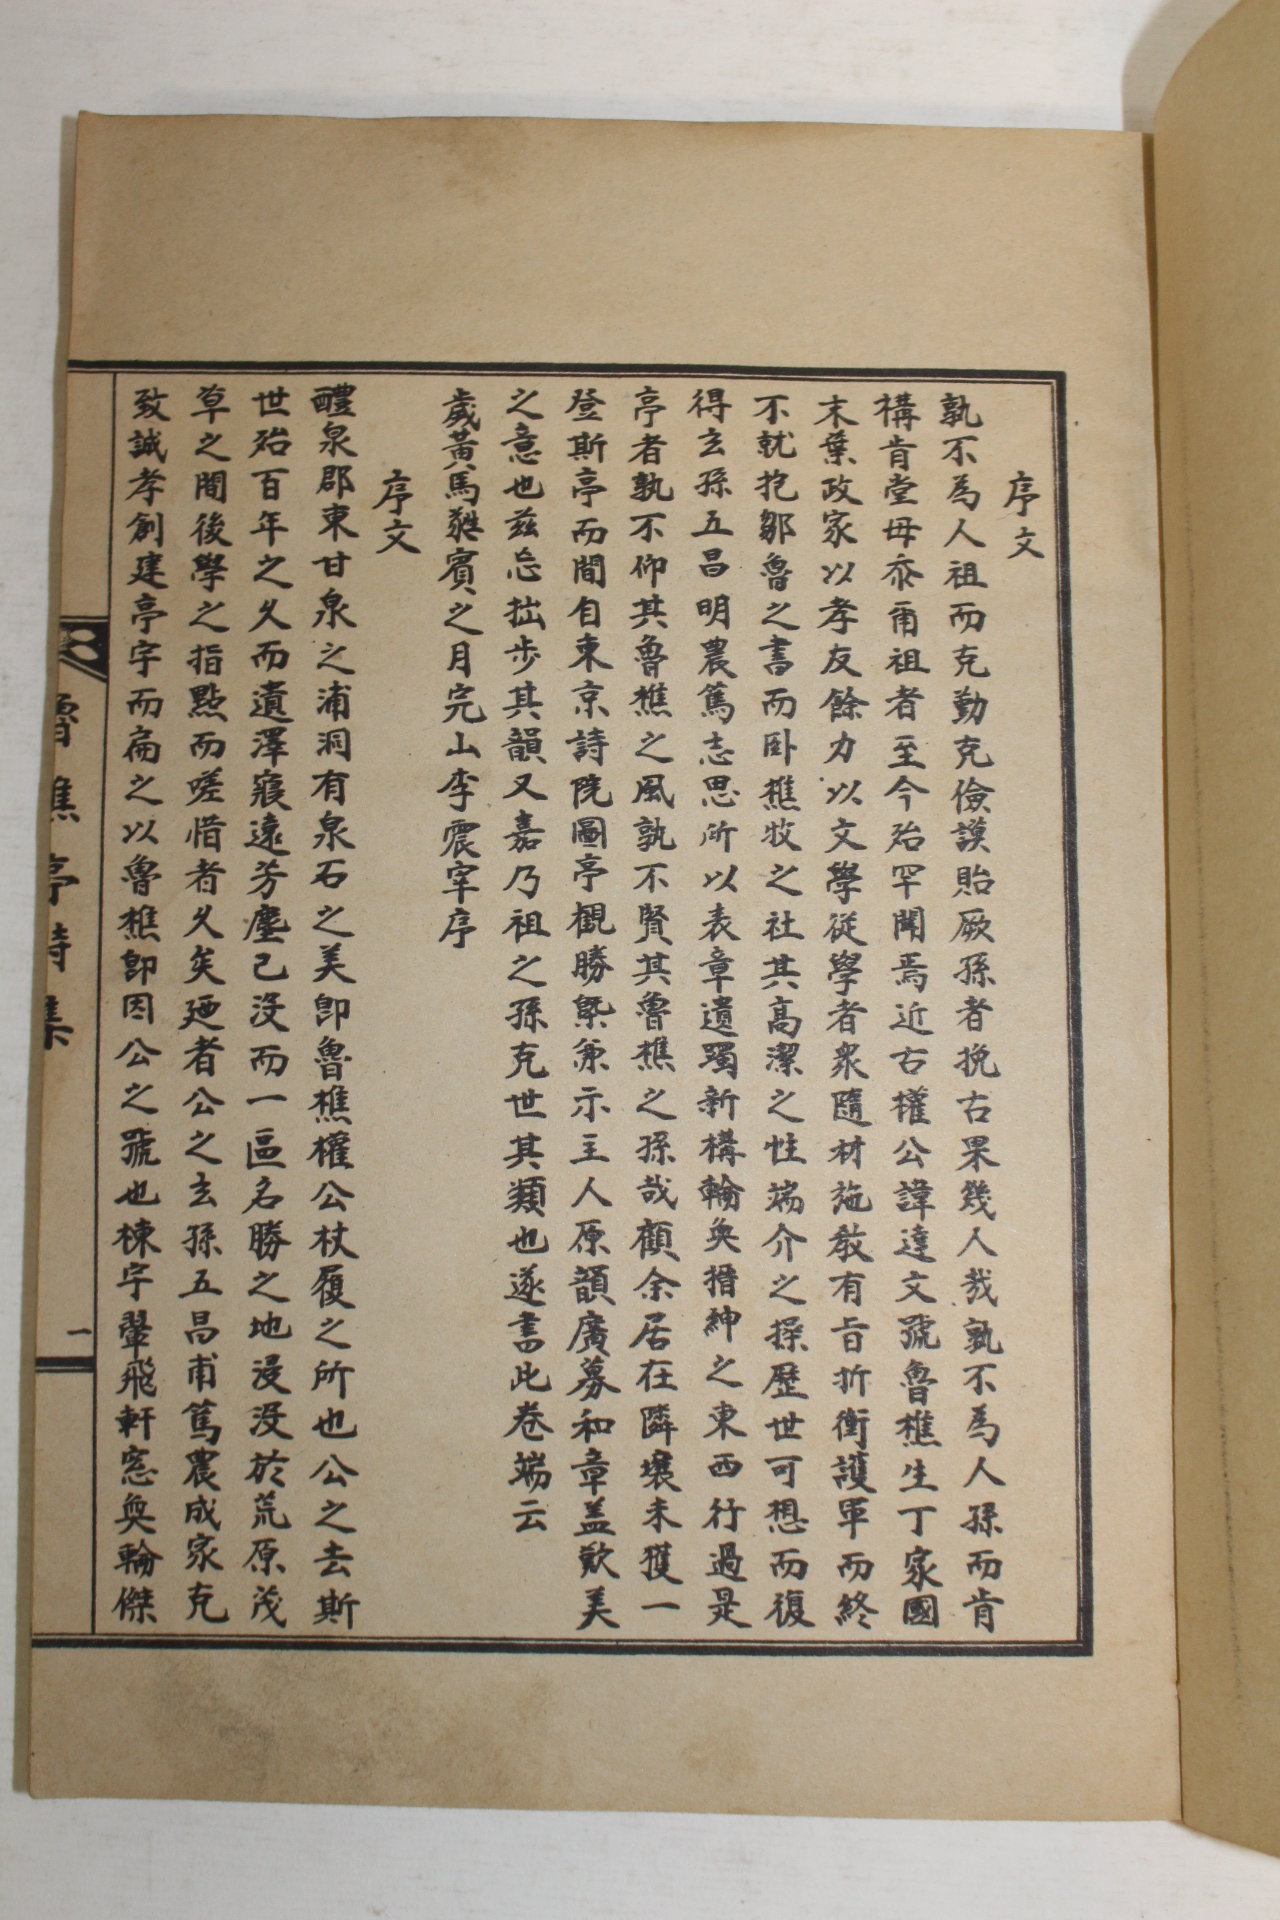 序文
孰不為人祖而克勤克儉謨貽厥孫者挽古果幾人哉孰不為人孫而肯
構肯堂毋忝甭祖者至今殆罕聞焉近古權公諱達文號魯樵生丁家國
末葉政家以孝友餘力以文學從學者衆隨材施敎有旨折衝護軍而終
不就抱鄒魯之書而卧樵牧之社其高潔之性端介之操歷世可想而復
得玄孫五昌明農篤志思所以表章遺躅新構輪奐搢紳之東西行過是
亭者孰不仰其魯樵之風孰不賢其魯樵之孫哉顧余居在隣壤未獲一
登斯亭而間自東京詩院圖亭觀勝槩兼示主人原韻廣募和章盖歎美
之意也兹忘拙步其韻又嘉乃祖之孫克世其類也遂書此卷端云
歲黃馬蕤賓之月完山李震宰序
序文
醴泉郡東甘泉之浦洞有泉石之美卽魯樵權公杖履之所也公之去斯
世殆百年之久而遺澤寢遠芳塵已沒而一區名勝之地浸沒於荒原茂
草之間後學之指點而嗟惜者久矣廼者公之玄孫五昌甫篤農成家克
致誠孝創建亭宇而扁之以魯樵卽因公之號也棟宇翬飛軒窓奐輪傑
魯樵亭詩集
一